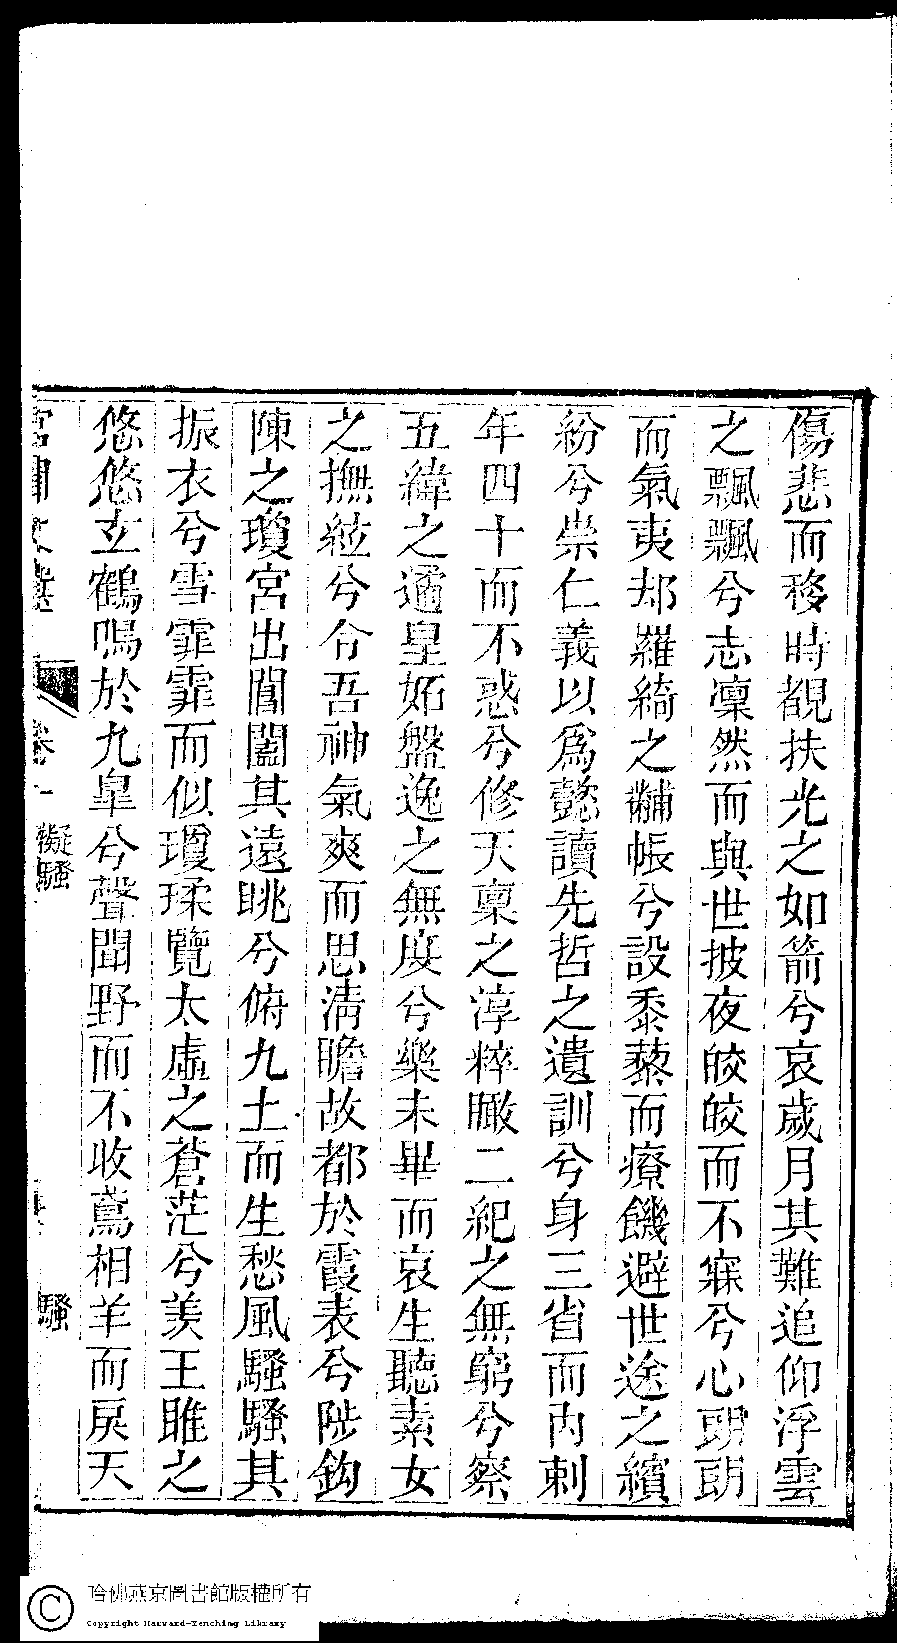 傷悲而移時覩扶光之如箭兮哀歲月其難追仰浮雲
之飄飄兮志凜然而與世披夜皎皎而不寐兮心朗朗
而氣夷却羅綺之黼帳兮設黍藜而療饑避世途之繽
紛兮崇仁義以爲懿讀先哲之遺訓兮身三省而內刺
年四十而不惑兮修天稟之淳粹瞰二紀之無窮兮察
五緯之遹皇妬盤逸之無度兮樂未畢而哀生聽素女
之撫絃兮令吾神氣爽而思淸瞻故都於霞表兮陟鈎
陳之瓊宮出閶闔其遠眺兮俯九土而生愁風騷騷其
振衣兮雪霏霏而似瓊瑈覽太虛之蒼茫兮羨王雎之
悠悠玄鶴鳴於九皐兮聲聞野而不收鳶相羊而戾天
宮閨文選
卷一
擬騷
騷
哈佛燕京圖書館版權所有
Copyright Harvard-Yenching Library